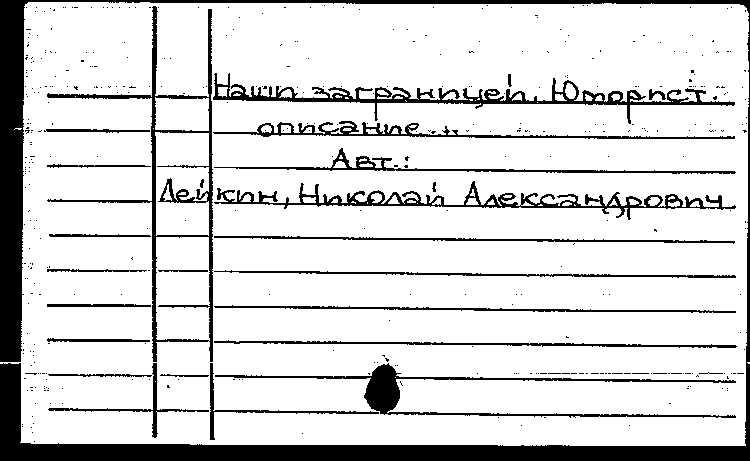 Наши заграницей. Юморист.
описание...
Авт.:
Лейкин, Николай Александрович